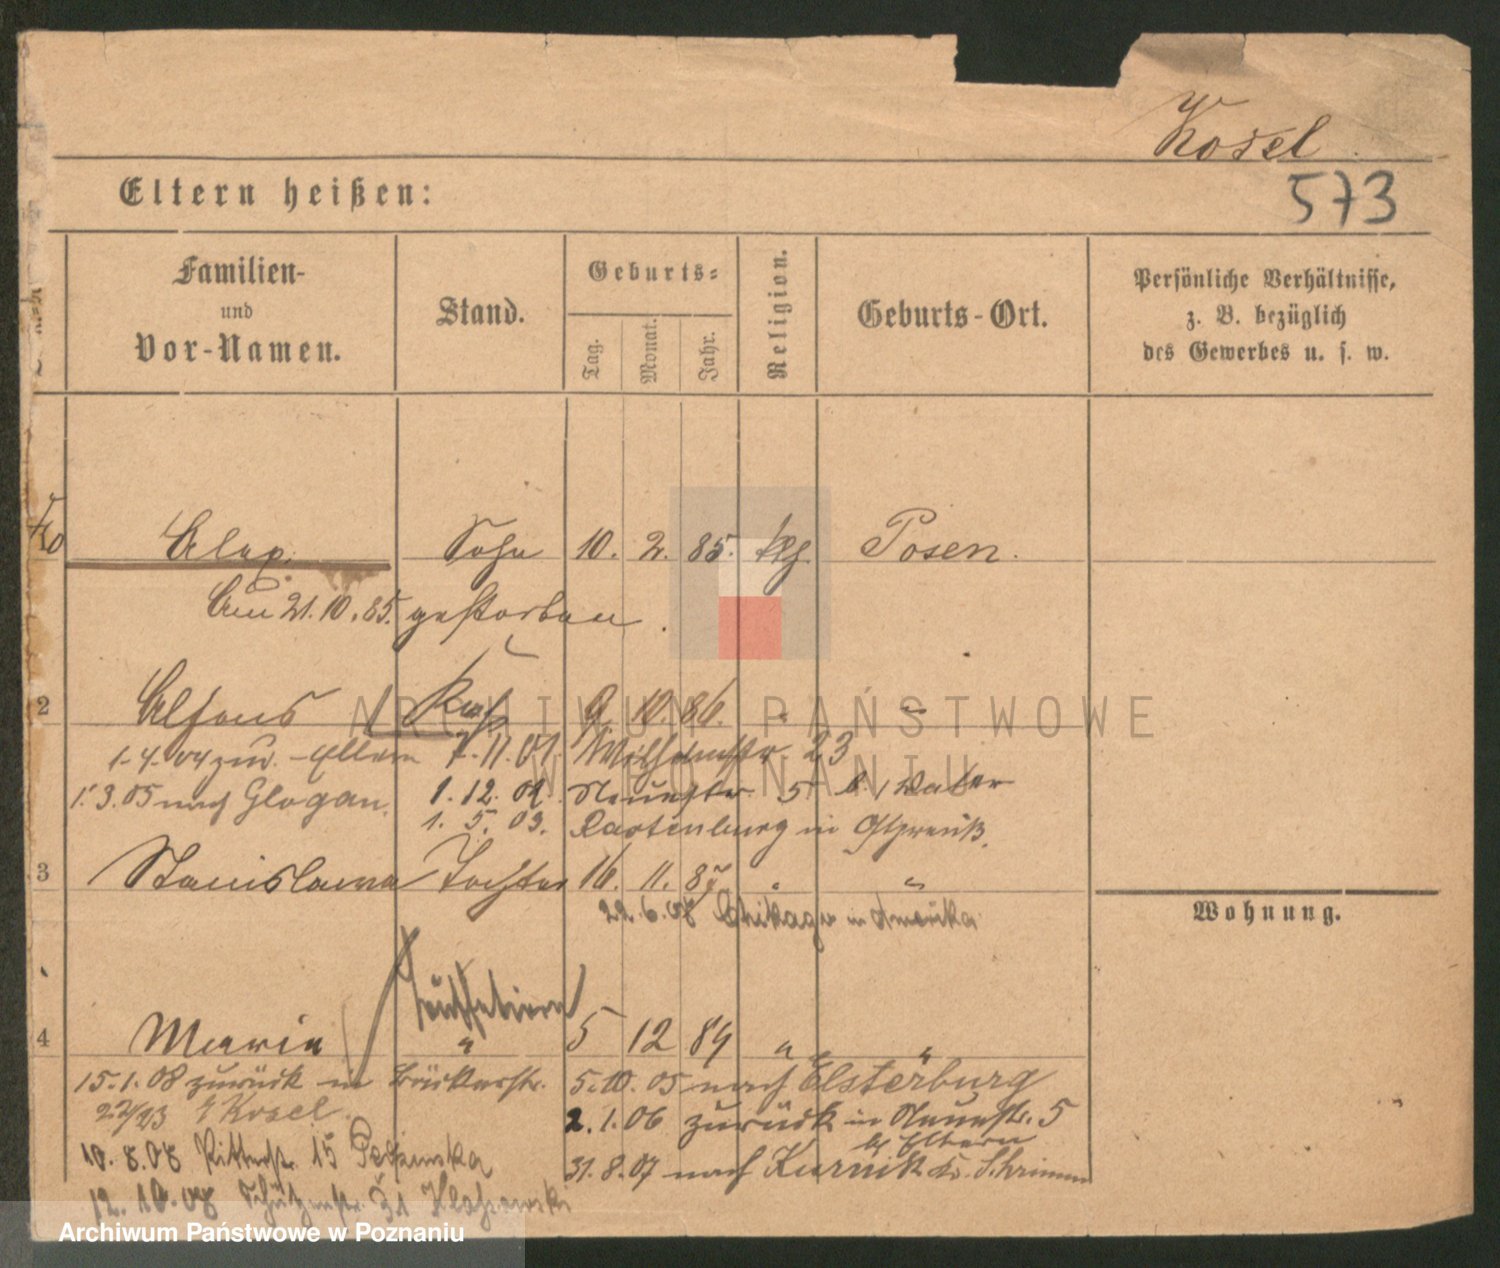 Kosel
573
Eltern heißen:
Familien-
und
Vor-Namen.
Stand.
Geburts=
Tag.
Monat.
Jahr.
Religion.
Geburts-Ort.
Persönliche Verhältnisse,
z. B. bezüglich
des Gewerbes u. s. w.
Sohn 10. 2. 85. Posen.
Am 21.10.85. gestorben.
2 Alfons 9. 10. 86. " "
1.4.04 zur. Eltern 7.11.01. Wilhelmstr. 23
1.3.05 nach Glogau. 1.12.02. Neuestr. 5 b. Vater
1. 5. 03. Rastenburg in Ostpreuß.
3 Stanislawa Tochter 16. 11. 87 " "
22.6.08 Chikago in Amerika
Wohnung.
4 Maria " 5 12 89 " "
15.1.08 zurück in Bäckerstr. 5.10.05 nach Elsterburg
22/23 Kosel. 2.1.06 zurück in Neuestr. 5
b/ Eltern
10.8.08 Ritterstr. 15 31.8.07 nach Kurnik Kr. Schrimm
12.10.08 Schützenstr. 31
ARCHIWUM PAŃSTWOWE
W POZNANIU
Archiwum Państwowe w Poznaniu